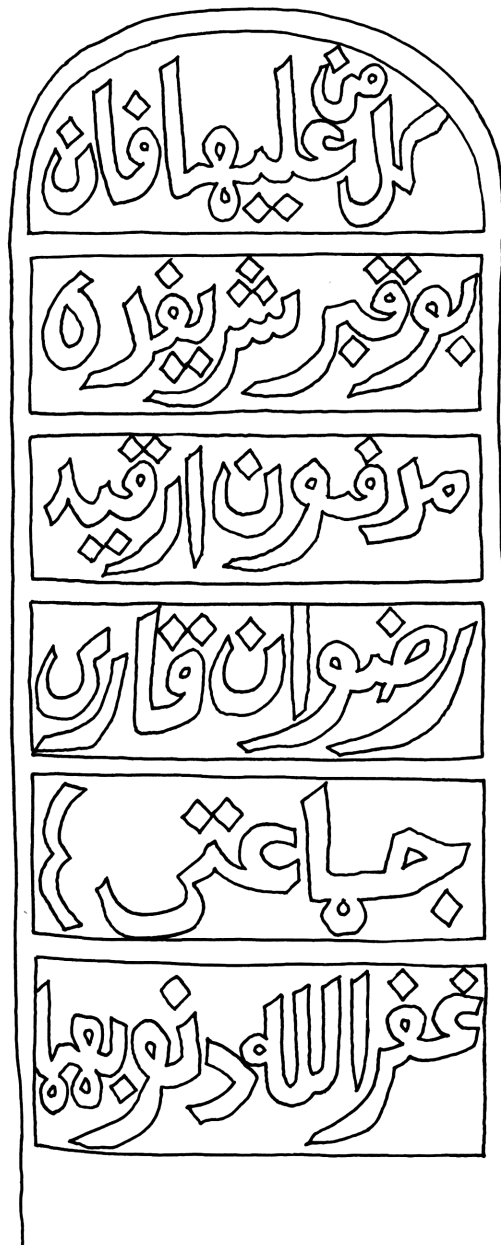 كل من عليها فان
بو قبر شريفده
مدفون ارقيد
رضوان قارى
جماعتى
غفر الله دنوبهما